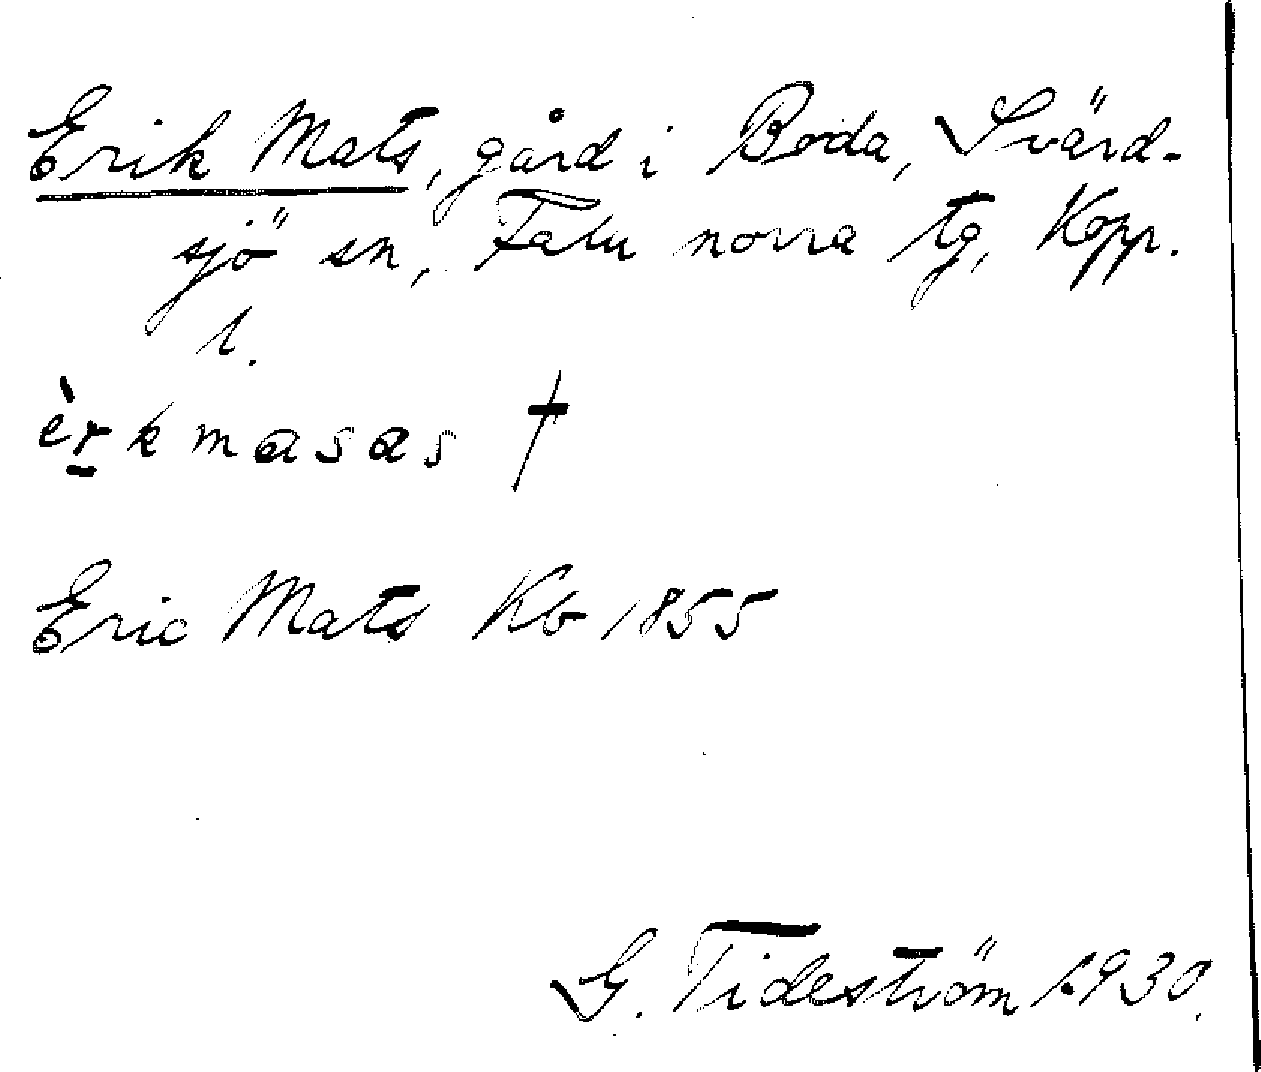 Erik Mats, gård i Boda, Svärd-
sjö sn, Falu norra tg, Kopp.
l.
èr̠kmasas †
Eric Mats Kb 1855
G. Tideström 1930.